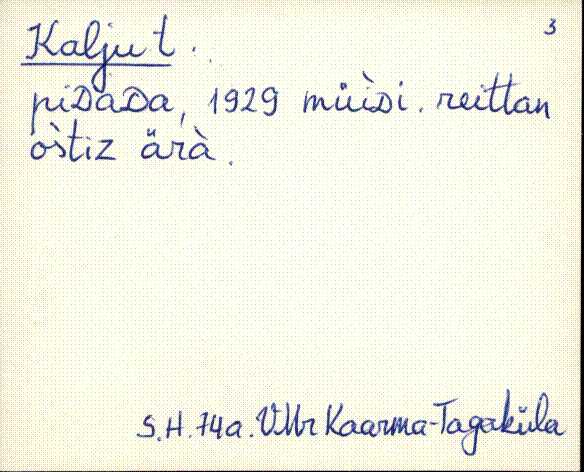 3
Kalju t.
piDàDa, 1929 müìDi. reittan
òstiz ärà.
S.H. 74a. VMr Kaarma-Tagaküla